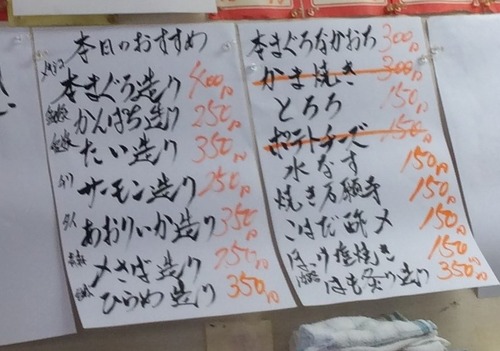 本日のおすすめ
本まぐろ造り 400円
かんぱち造り 250円
たい造り 350円
サーモン造り 250円
あおりいか造り 350円
〆さば造り 250円
ひらめ造り 350円
本まぐろなかおち 300円
かま焼き 300円
とろろ 150円
ポテトチーズ 150円
水なす 150円
焼き万願寺 150円
こはだ酢〆 150円
塩焼き 150円
はも炙り造り 350円